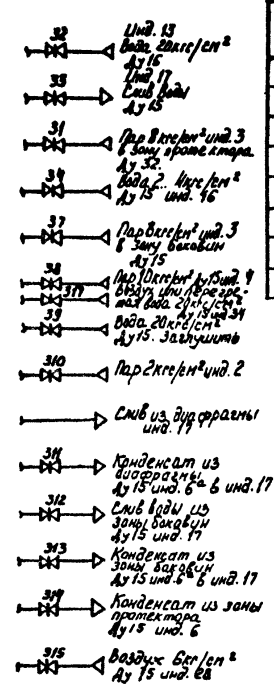 32
Инд. 13
Вода 20кгс/см²
Ду 15
33
Инд 17
Слив воды
Ду 15
31
Пар 8кгс/см² инд. 3
в зону протектора
Ду 32
34
Вода 2... 4кгс/см²
Ду 15 инд. 16
37
Пар 8кгс/см² инд. 3
в зону боковин
Ду 15
38
Пар 10кгс/см² Ду 15 инд. 4
317
Воздух или перегре-
тая вода 20кгс/см²
Ду 15 инд 34
39
Вода 20кгс/см²
Ду 15. Заглушить
310
Пар 2кгс/см² инд. 2
Слив из диафрагмы
инд. 17
311
Конденсат из
диафрагмы
Ду 15 инд. 6ª в инд. 17
312
Слив воды из
зоны боковин
Ду 15 инд. 17
313
Конденсат из
зоны боковин
Ду 15 инд. 6ª в инд. 17
314
Конденсат из зоны
протектора
Ду 15 инд. 6
315
Воздух 6кг/см²
Ду 15 инд.